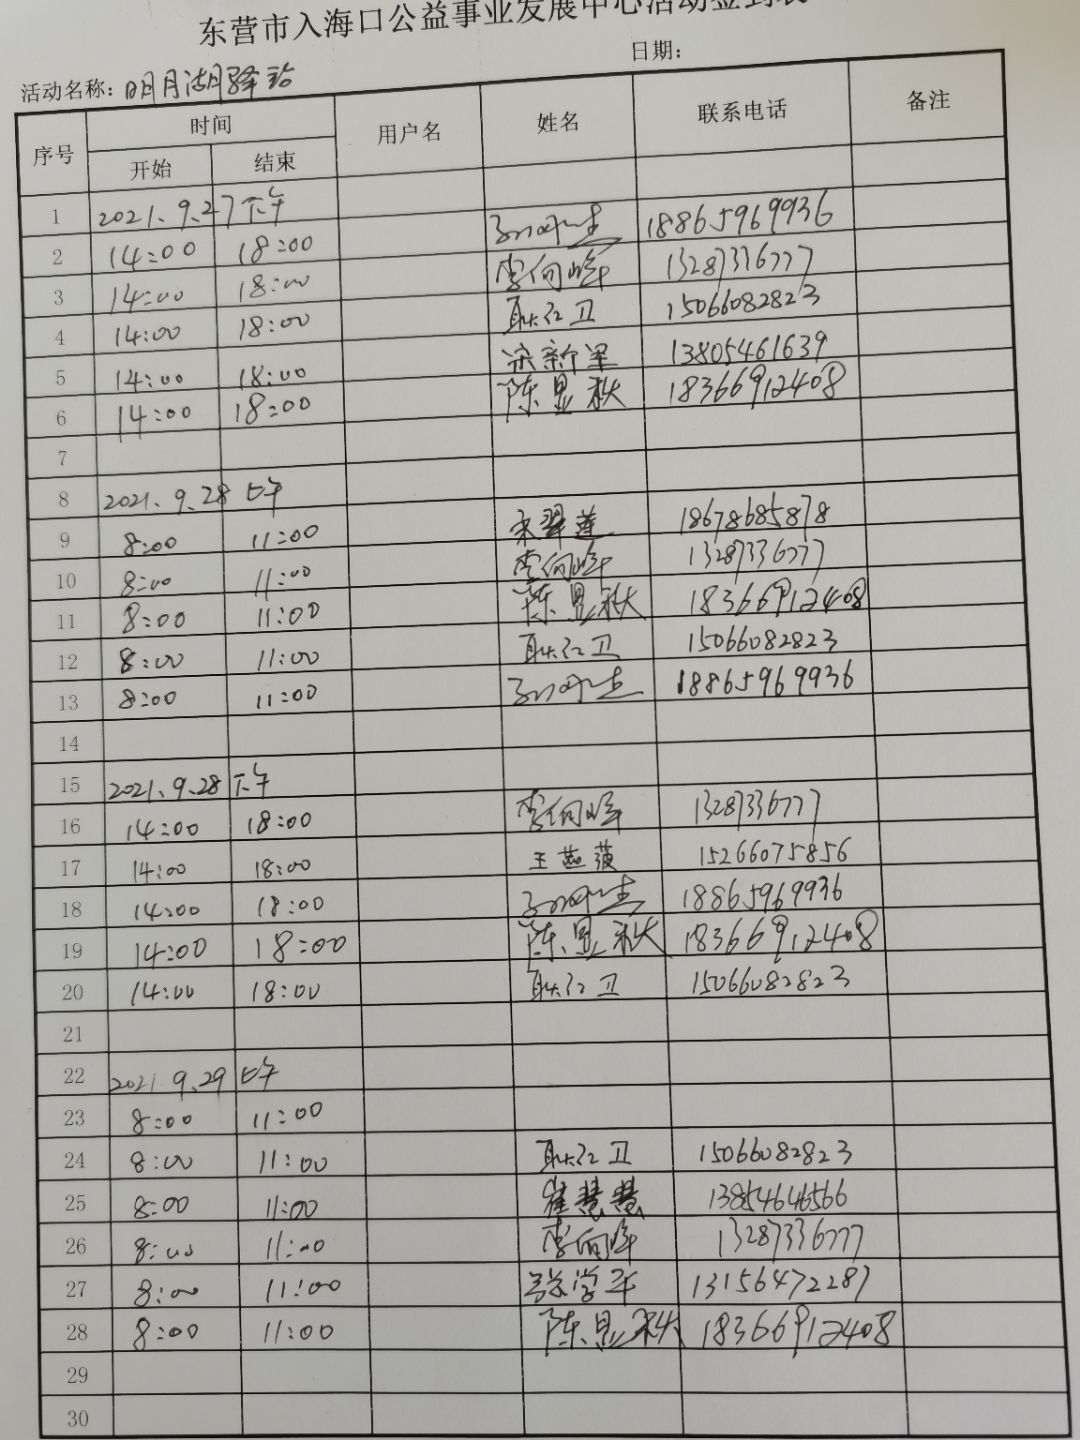 东营市入海口公益事业发展中心活动签到表
活动名称：明月湖驿站 日期：
序号 时间 用户名 姓名 联系电话 备注
开始 结束
1 2021.9.27下午
2 14:00 18:00 18865969936
3 14:00 18:00 李向峰 13287336777
4 14:00 18:00 耿红卫 15066082823
5 14:00 18:00 宋新军 13805461639
6 14:00 18:00 陈显秋 18366912408
7
8 2021.9.28 上午
9 8:00 11:00 宋翠莲 18678685878
10 8:00 11:00 李向峰 13287336777
11 8:00 11:00 陈显秋 18366912408
12 8:00 11:00 耿红卫 15066082823
13 8:00 11:00 18865969936
14
15 2021.9.28 下午
16 14:00 18:00 李向峰 13287336777
17 14:00 18:00 王燕菠 15266075856
18 14:00 18:00 18865969936
19 14:00 18:00 陈显秋 18366912408
20 14:00 18:00 耿红卫 15066082823
21
22 2021 9.29 上午
23 8:00 11:00
24 8:00 11:00 耿红卫 15066082823
25 8:00 11:00 崔慧慧 13854646566
26 8:00 11:00 李向峰 13287336777
27 8:00 11:00 张学平 13156472287
28 8:00 11:00 陈显秋 18366912408
29
30